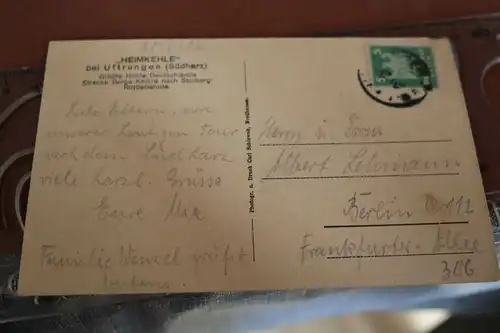 „HEIMKEHLE"
bei Uftrungen (Südharz)
Größte Höhle Deutschlands
Strecke Berga-Kelbra nach Stolberg-
Rottleberode
Liebe Eltern, von
unserer heutigen Tour
nach dem Südharz
viele herzl. Grüsse
Eure Max
Familie Wenzel grüßt
bestens.
Photogr. u. Druck Carl Schiewek, Nordhausen.
Herrn u. Frau
Albert Lehmann
Berlin O 112
Frankfurter Allee
306
5